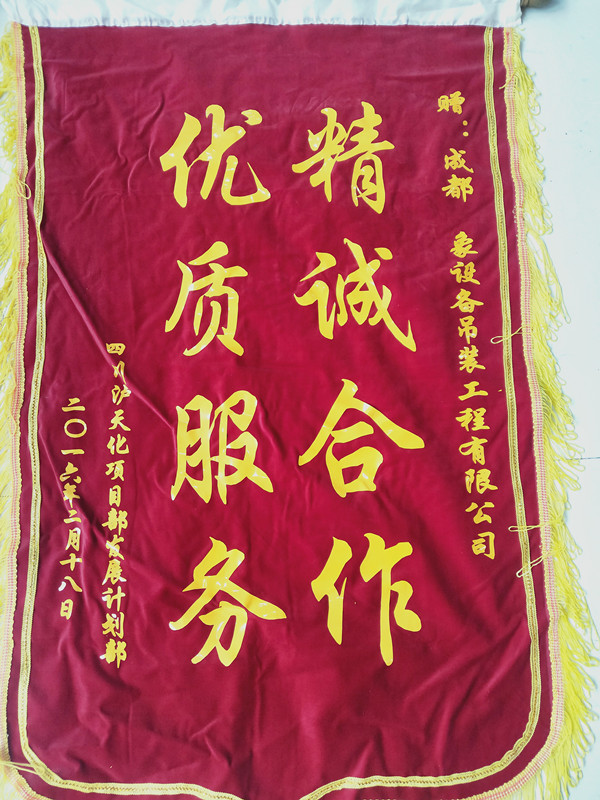 赠：成都 象设备吊装工程有限公司
精诚合作
优质服务
四川泸天化项目部发展计划部
二〇一六年二月十八日